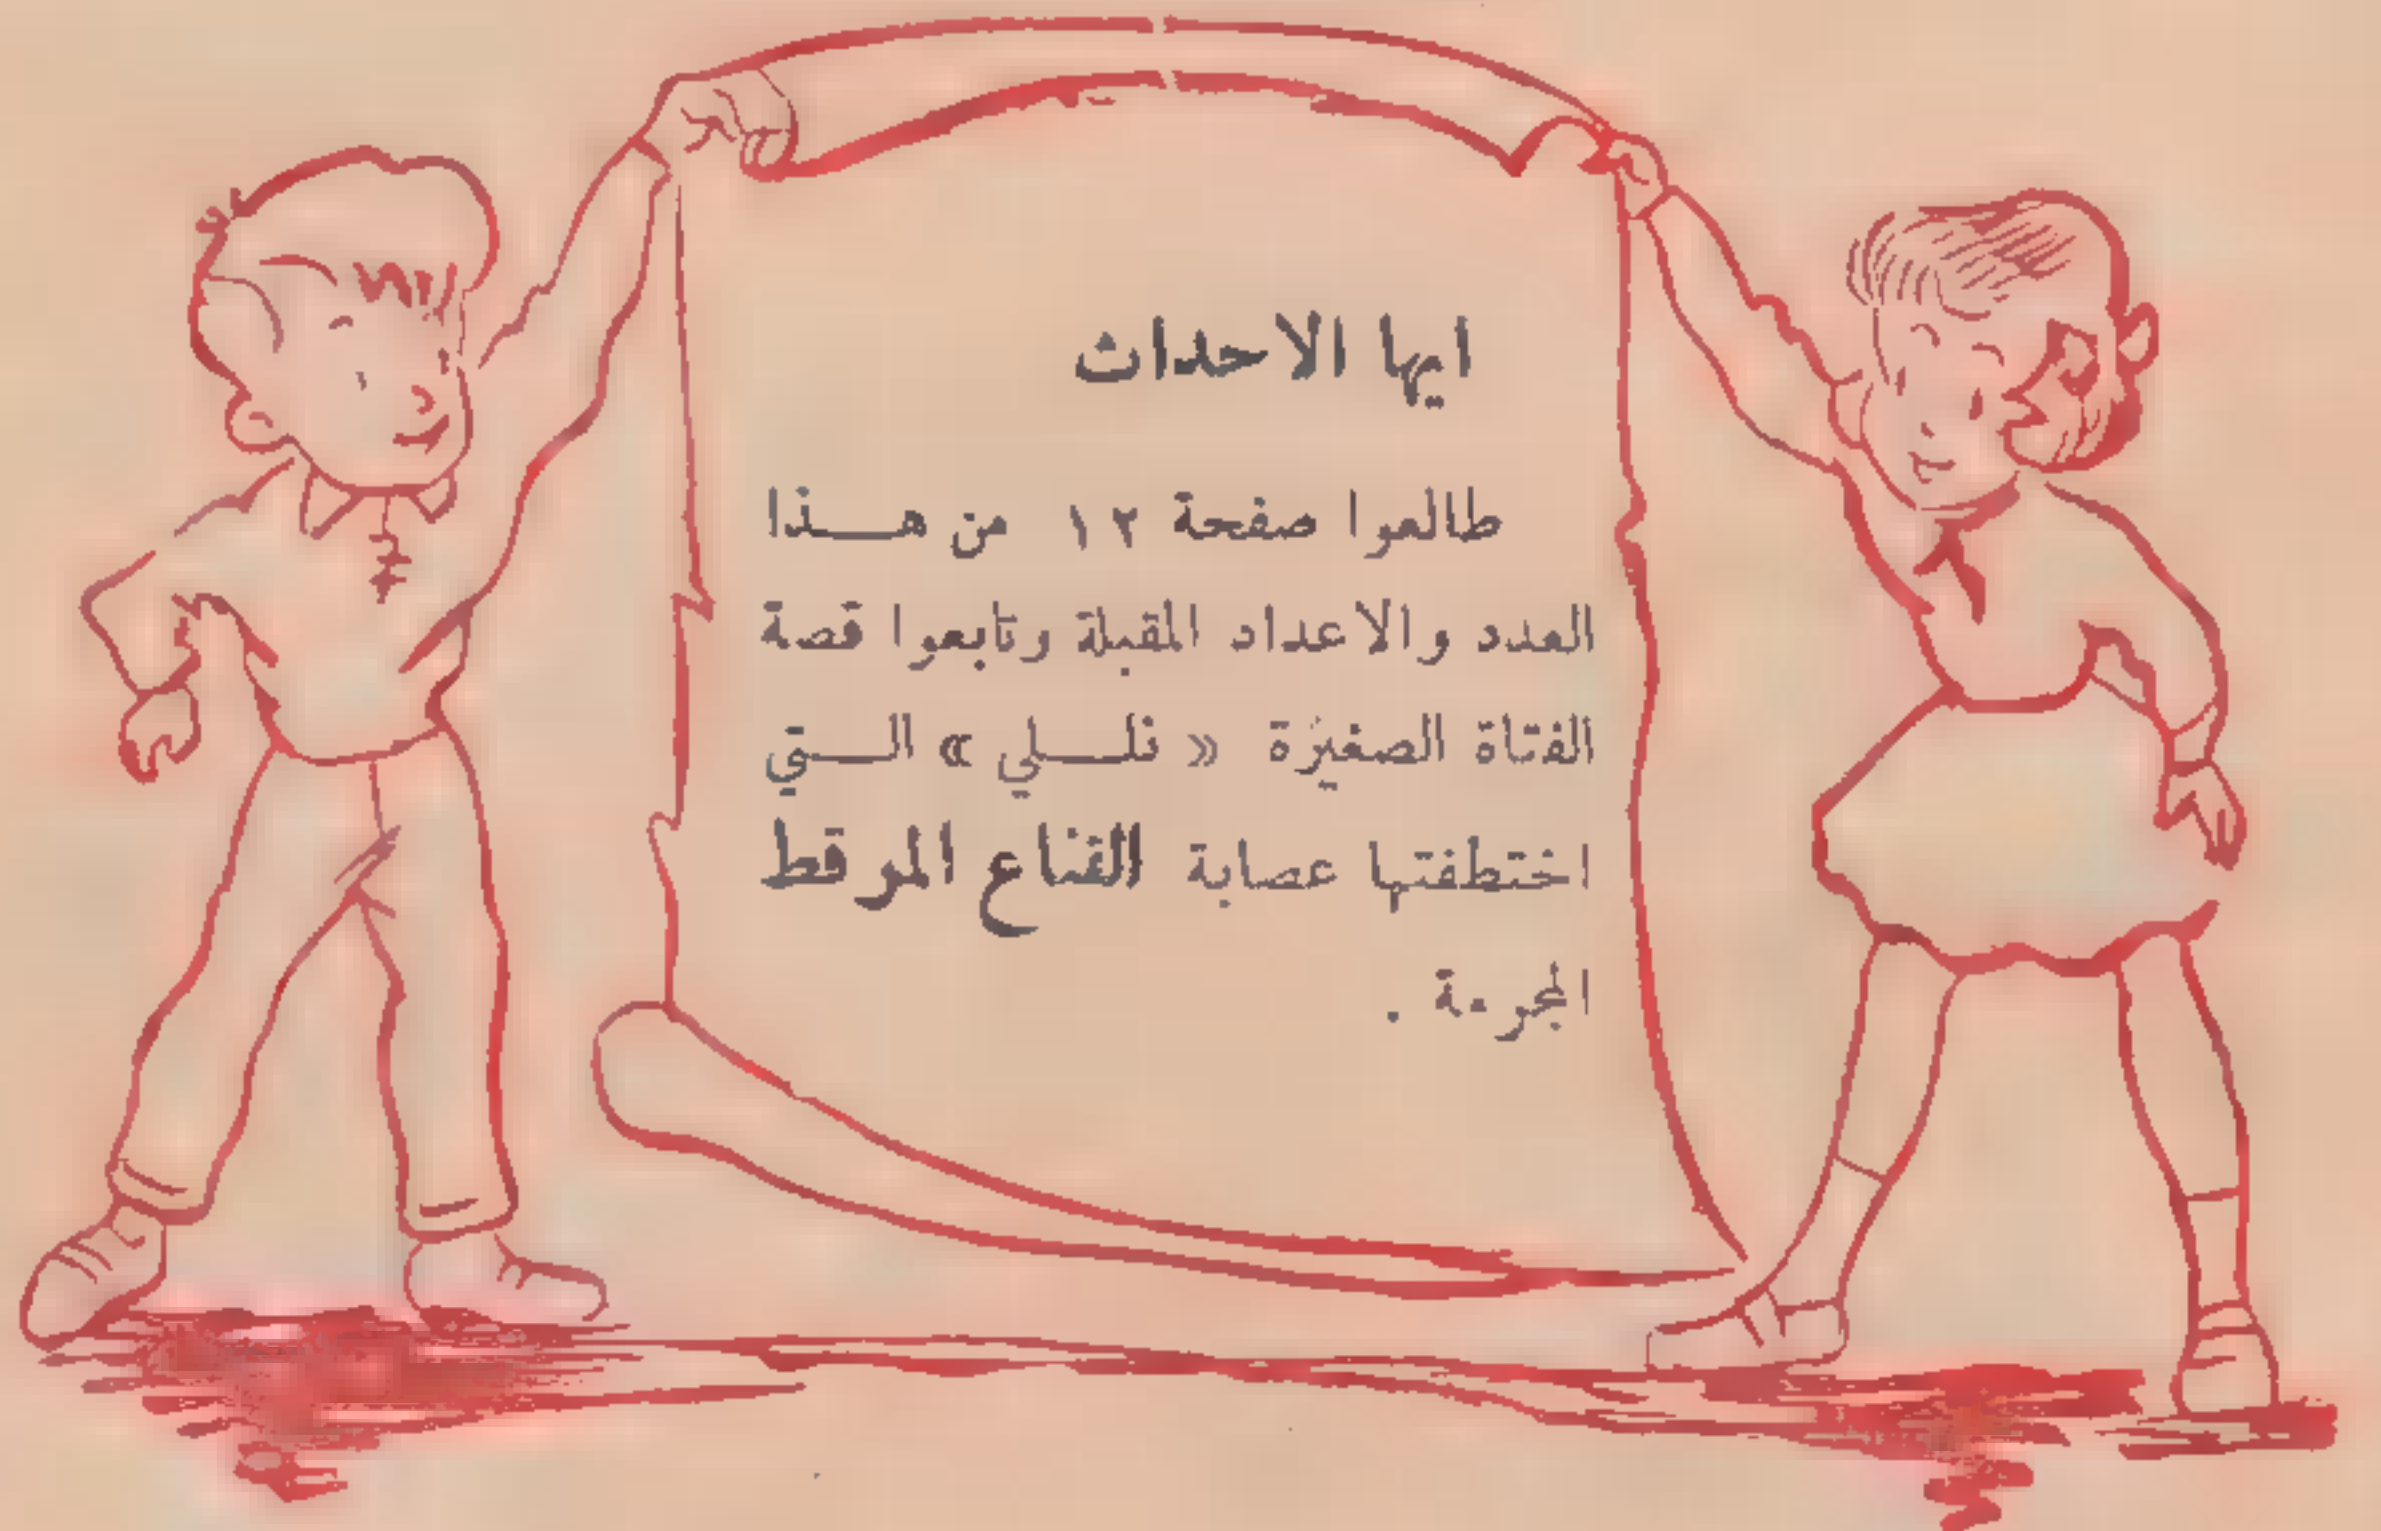 ايها الاحداث
طالعوا صفحة ١٢ من هـــذا
العدد والاعداد المقبلة وتابعوا قصة
الفتاة الصغيرة « نلــلي » الــتي
اختطفتها عصابة القناع المرقط
المجرمة .